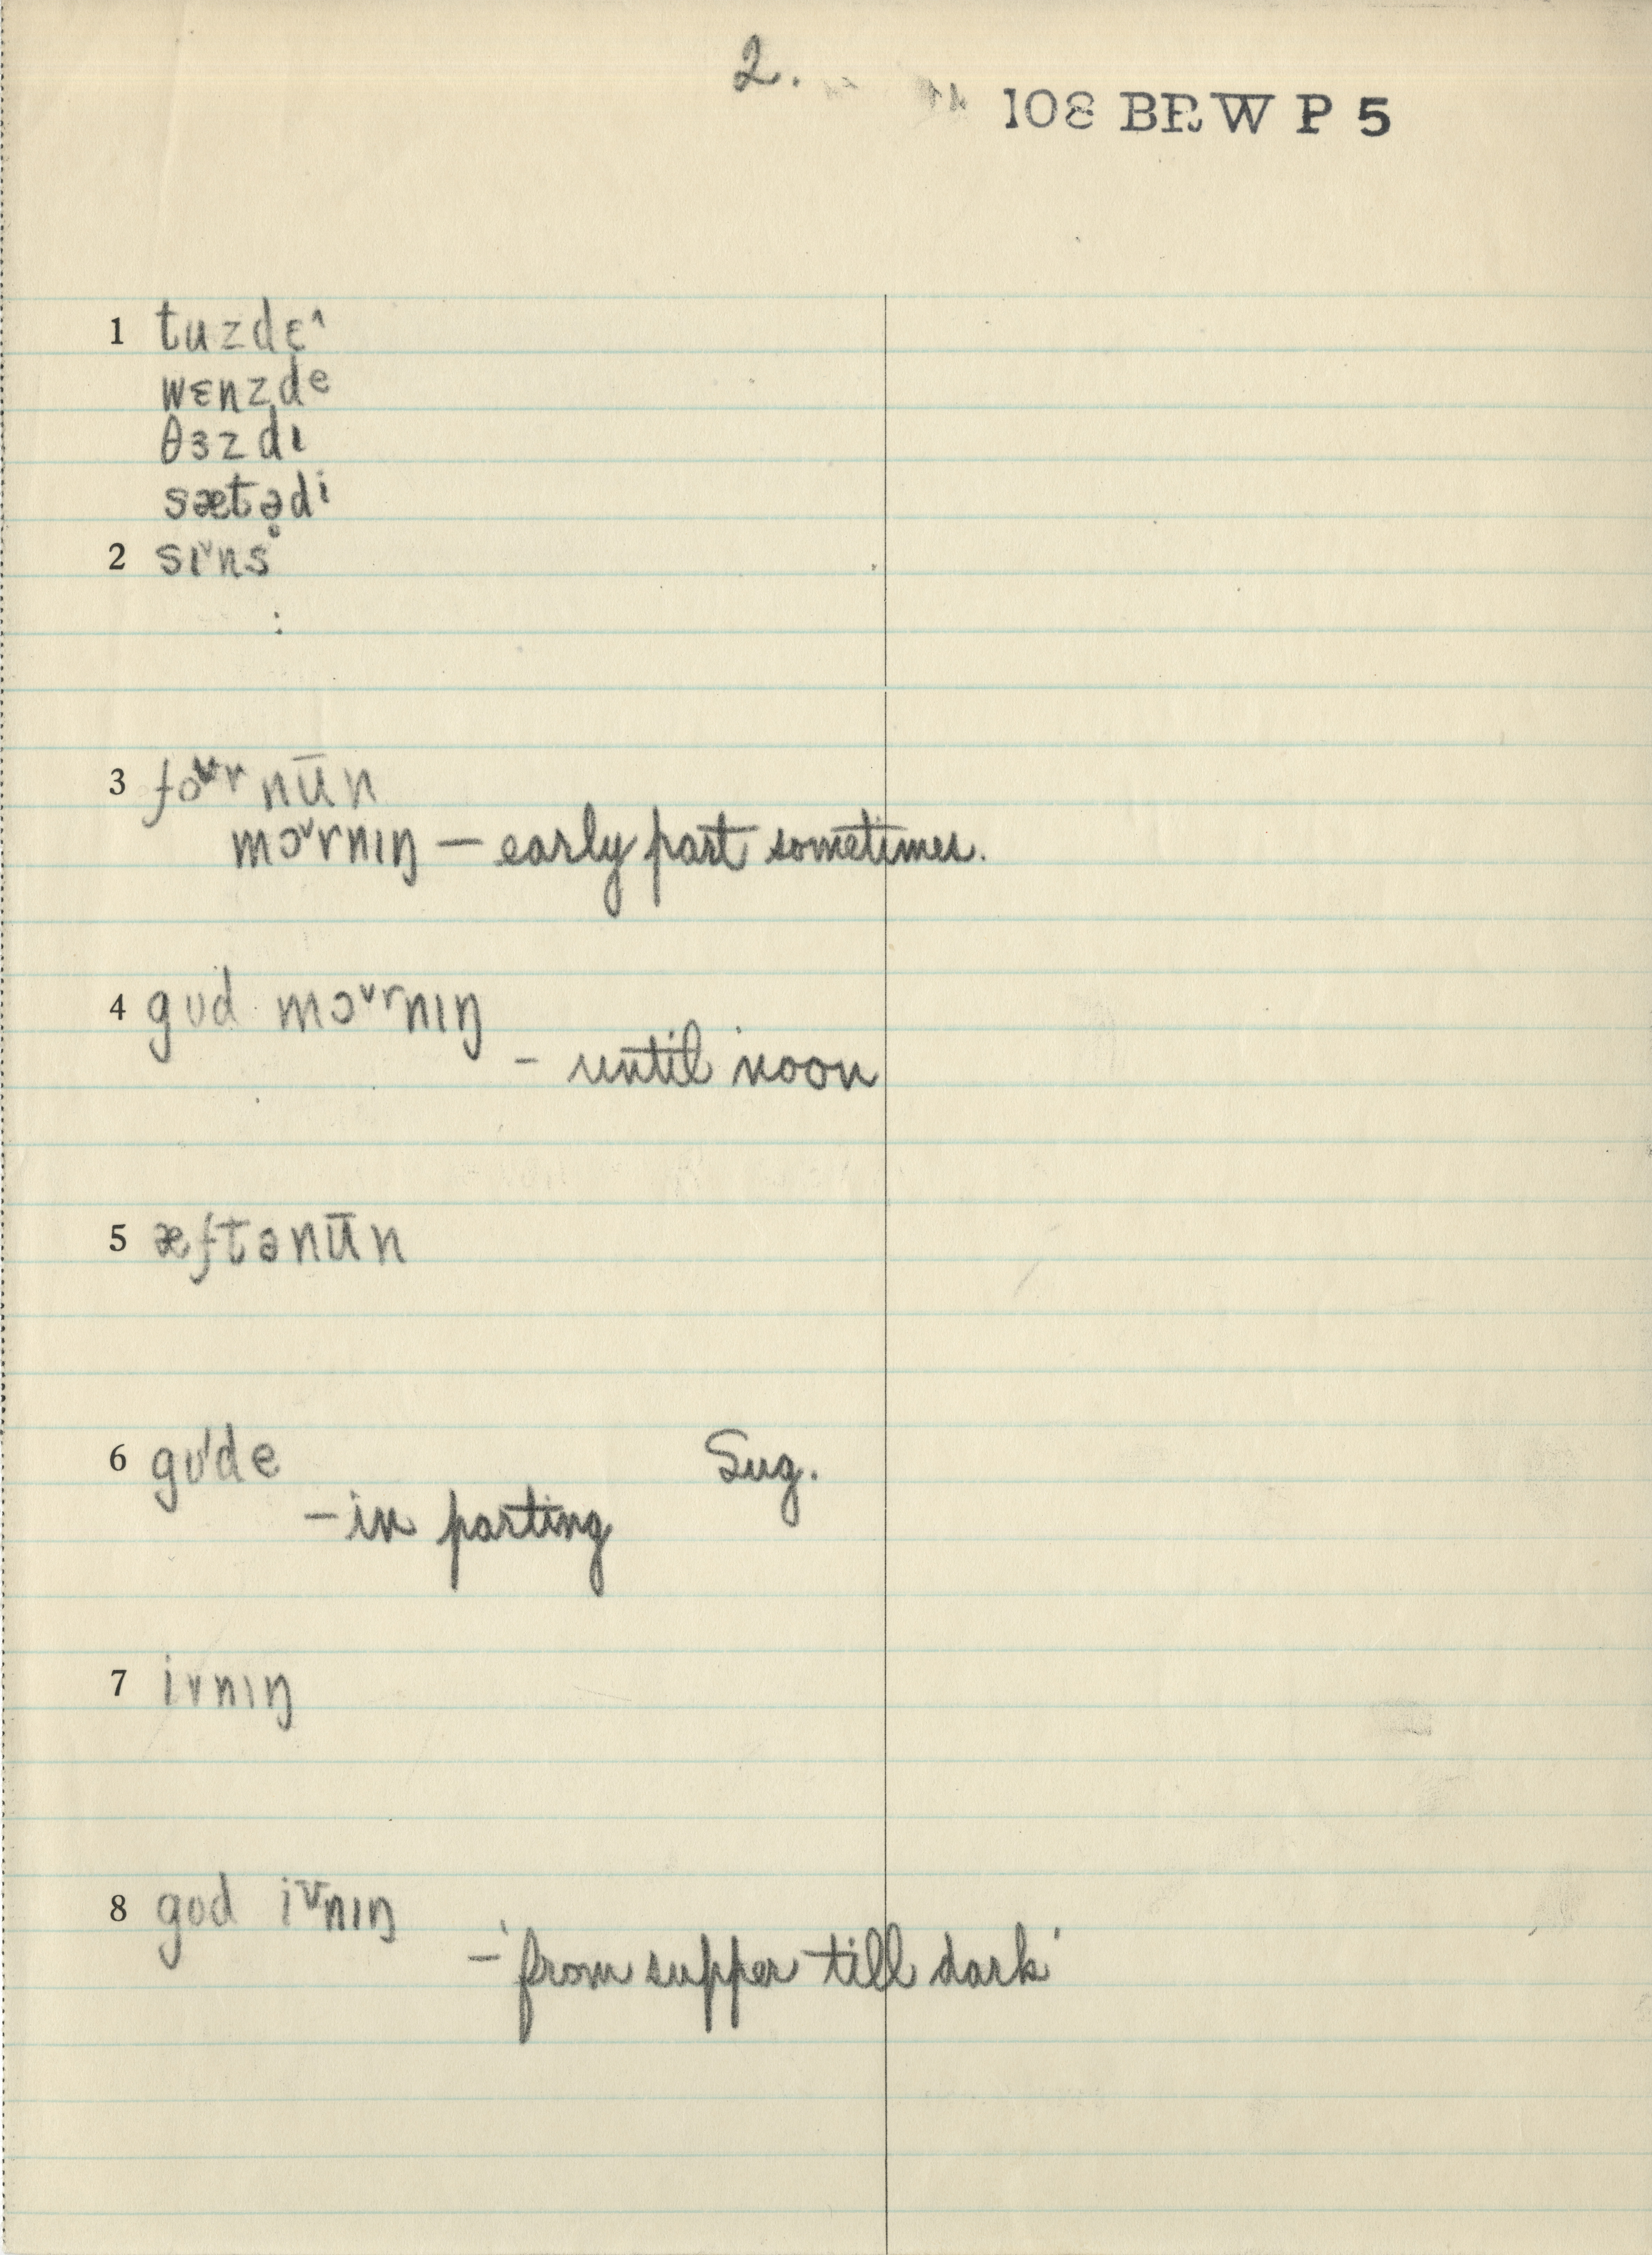 2.
108 BRW P 5
1 tuzdɛ^
wɛnzde
θɜzdɪ
sætədi
2 sɪ˅ns
:
3 foʊr nūn
mɔ˅rnɪŋ — early part sometimes.
4 gʊd mɔ˅rnɪŋ
– until noon
5 æftənūn
6 gʊ'de Sug.
– in parting
7 ivnɪŋ
8 gʊd iv̄nɪŋ
– 'from supper till dark'